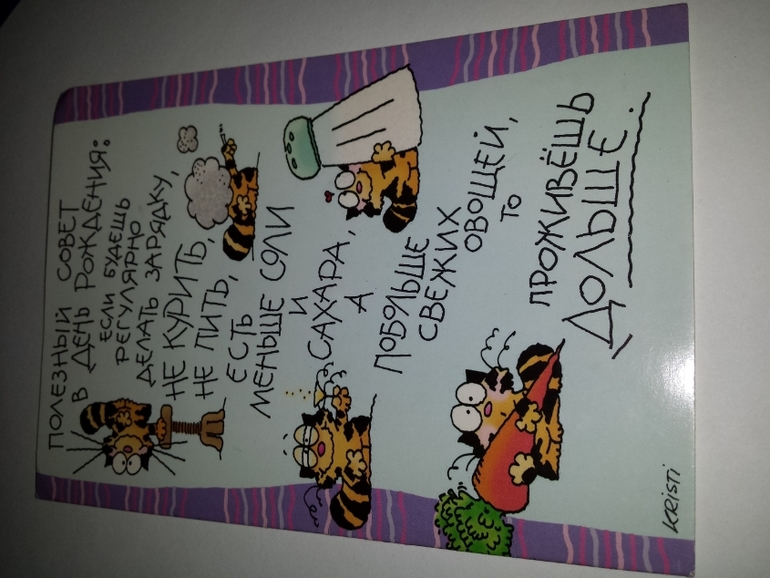 ПОЛЕЗНЫЙ СОВЕТ
В ДЕНЬ РОЖДЕНИЯ:
ЕСЛИ БУДЕШЬ
РЕГУЛЯРНО
ДЕЛАТЬ ЗАРЯДКУ,
НЕ КУРИТЬ,
НЕ ПИТЬ,
ЕСТЬ
МЕНЬШЕ СОЛИ
И
САХАРА,
А
ПОБОЛЬШЕ
СВЕЖИХ
ОВОЩЕЙ,
ТО
ПРОЖИВЁШЬ
ДОЛЬШЕ...
KRISTI